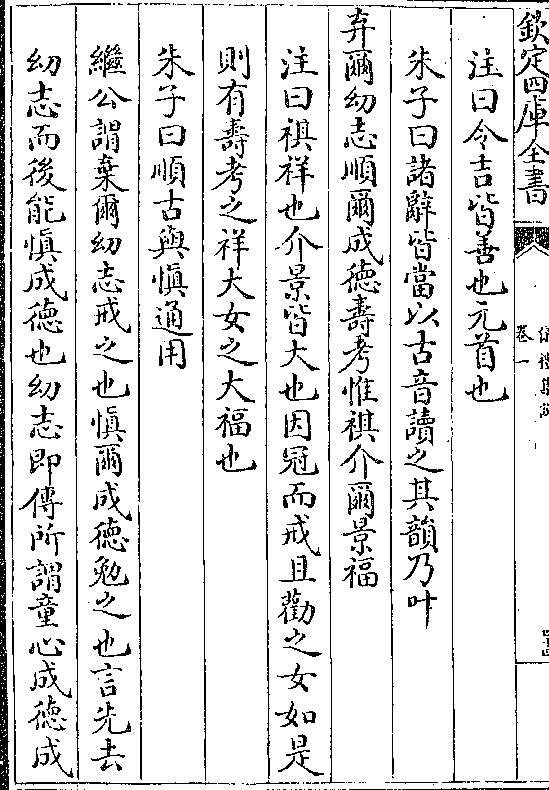 欽定四庫全書
儀禮集說
卷一
注曰令吉皆善也元首也
朱子曰諸辭皆當以古音讀之其韻乃叶
弃爾幼志順爾成德壽考惟祺介爾景福
注曰祺祥也介景皆大也因冠而戒且勸之女如是
則有壽考之祥大女之大福也
朱子曰順古與慎通用
繼公謂棄爾幼志戒之也慎爾成德勉之也言先去
幼志而後能慎成德也幼志即傳所謂童心成德成